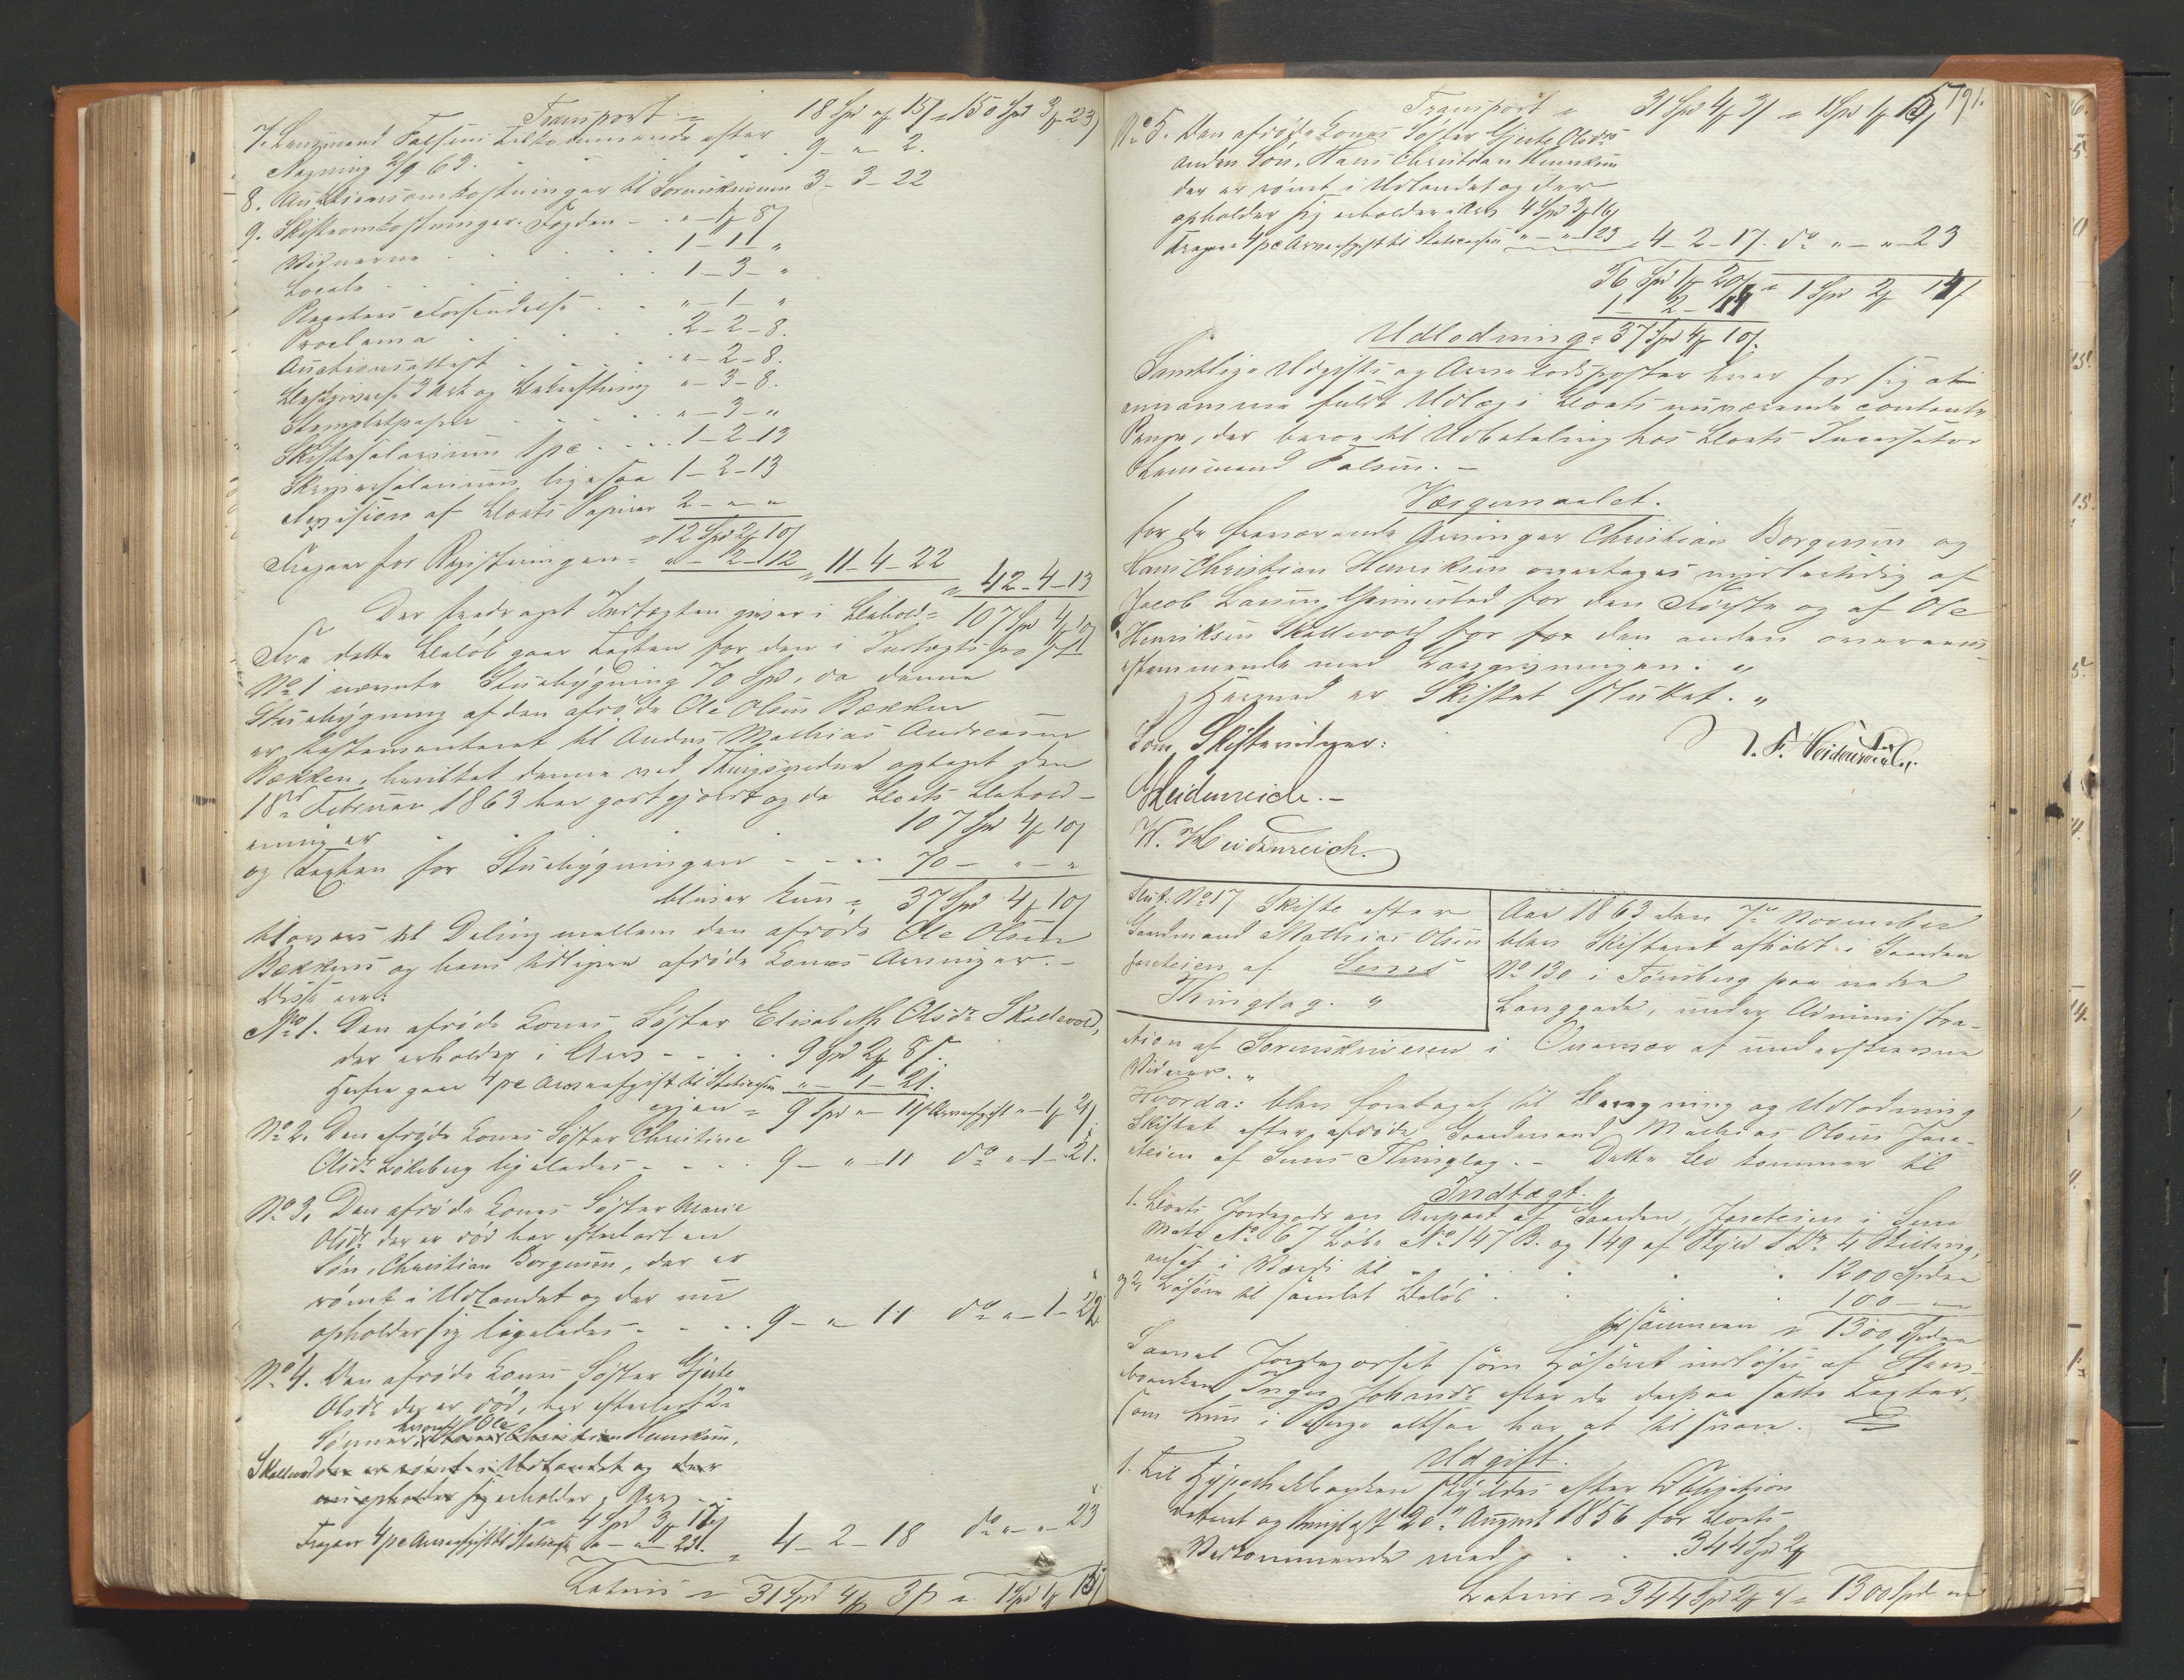 Transport = 18 Spd " 15 ß = 150 Spd 3 ℔ 23 ß
7. Lensmand Falsens Tilkommende efter
Regning 2/9 63. . . . 9 - " - 2.
8. Auktionsomkostninger til Sorenskriveren 3 - 3 - 22
9. Skifteomkostninger. Fogden - . " - 1 ℔ 8 ß
Vidnerne . . . . 1 - 1 - "
Locale . . . . 1 - 3 - "
Forsendelse . . " - 1 - "
Proclama . . . . 2 - 2 - 8.
Auctionsattest . . . . " - 2 - 8.
Beskrivelse 3 Ark og Bekræftning " - 3 - 8.
Stempletpapir . . . . " - 3 - "
Skiftesalarium 1 pc . . . 1 - 2 - 13
Skriversalarium ligesaa 1 - 2 - 13
Revision af Boets Papirer 2 - " - "
= 12 Spd 2 ℔ 10 ß
Fragaar for Registeringen = " - 2 - 12 = 11 - 4 - 22
= 42 - 4 - 13
Der fradraget Indtægten giver i Behold = 107 Spd 4 ℔ 10 ß
Fra dette Beløb gaar Taxten for den i Indtægtspost
No 1 nævnte Stuebygning 70 Spd, da denne
Stuebygning af den afdøde Ole Olsen Bækken
er testamenteret til Anders Mathias Andreassen
Bækken, hvilket denne ved Thingsvidne optaget den
18de Februar 1863 har godtgjort og da Boets Behold-
ning er . . . 107 Spd 4 ℔ 10 ß
og Taxten for Stuebygningen - - - 70 - " - "
bliver kun = 37 Spd 4 ℔ 10 ß
tilovers til Deling mellem den afdøde Ole Olsen
Bækkens og hans tidligere afdøde Kones Arvinger. -
Disse ere:
No 1. Den afdøde Kones Søster Elisabeth Olsdr Skallevold,
der erholder i Arv - - - . 9 Spd 2 ℔ 8 ß.
Herfra gaar 4 pc Arveafgift til Statscassen " - 1 - 21.
igjen = 9 Spd " - 11 ß Arveafgift " - 1 ℔ 21 ß
No 2. Den afdøde Kones Søster Christine
Olsdr Løkeberg ligeledes - - - . 9 - " - 11 do " - 1 - 21.
No 3. Den afdøde Kones Søster Marie
Olsdr der er død har efterladt en
Søn, Christian Borgersen, der er
rømt i Udlandet og der nu
opholder sig ligeledes - - . . 9 - " - 11 do " - 1 - 22
No 4. Den afdøde Kones Søster Gjerte
Olsdr der er død, har efterladt 2de
hvoraf Ole
Sønner, Hans Christian Henriksen,
Skallevold der er rømt i Udlandet og der
nu opholder sig erholder i Arv - -
4 Spd 3 ℔ 17 ß
Fragaar 4 pc Arveafgift til Statscassen " - " - 23. = 4 - 2 - 18 do " - " - 23
Lateris = 31 Spd 4 ℔ 3 ß = 1 Spd 1 ℔ 15 ß
791.
Transport = 31 Spd 4 ℔ 3 ß = 1 Spd 1 ℔ 15 ß
No 5. Den afdøde Kones Søster Gjerte Olsdrs
anden Søn, Hans Christian Henriksen
der er rømt i Udlandet og der
opholder sig erholder i Arv 4 Spd 3 ℔ 16 ß
Fragaar 4 pc Arveafgift til Statscassen " - " - 23 = 4 - 2 - 17. do " - " - 23
36 Spd 1 ℔ 20 ß = 1 Spd 2 ℔ 14 ß
1 - 2 - 14
Udlodning = 37 Spd 4 ℔ 10 ß.
Samtlige Udgifts og Arvelodsposter hver for sig at
annamme fuldt Udlæg i Boets nuværende contante
Penge, der beroe til Udbetaling hos Boets Incassator
Lensmand Falsen. -
Værgemaalet.
for de fraværende Arvinger Christian Borgersen og
Hans Christian Henriksen overtages midlertidig af
Jacob Larsen Grimestad for den Første og af Ole
Henriksen Skallevold for for den anden overeens-
stemmende med Lovgivningen. "
Hermed er Skiftet sluttet. "
Som Skiftevidner:
Heidenreich. -
W. Heidenreich.
Slut. No 17 Skifte efter
Gaardmand Mathias Olsen
Jareteien af Sems
Thinglag. "
Aar 1863 den 7de November
blev Skifteret afholdt i Gaarden
No 130 i Tønsberg paa nedre
Langgade, under Administra-
tion af Sorenskriveren i Overvær af underskrevne
Vidner. "
Hvorda: blev foretaget til Beregning og Udlodning
Skiftet efter afdøde Gaardmand Mathias Olsen Jare-
teien af Sems Thinglag. - Dette Bo kommer til
Indtægt.
1. Boets Jordegods en Anpart af Gaarden, Jareteien i Sem
Matr. No 67 Løbe No 147 B. og 149 af Skyld 1 Dr. 4 Skilling,
ansat i Værdi til . . . . 1200 Spdlr
og 2, Løsøre til samlet Beløb . . . 100 - "
tilsammen = 1300 Spdlr
Saavel Jordegodset som Løsøret indløses af Stervboe-
enken Inger Johnsdr efter de derpaa satte Taxter,
som hun i Penge altsaa har at tilsvare.
Udgift.
1. Til Hypothekbanken skyldes efter Obligation
dateret og thinglæst 20de August 1856 for Boets
Vedkommende med . . . 344 Spd 2 ℔
Lateris = 344 Spd 2 ℔ " ß = 1300 Spdlr